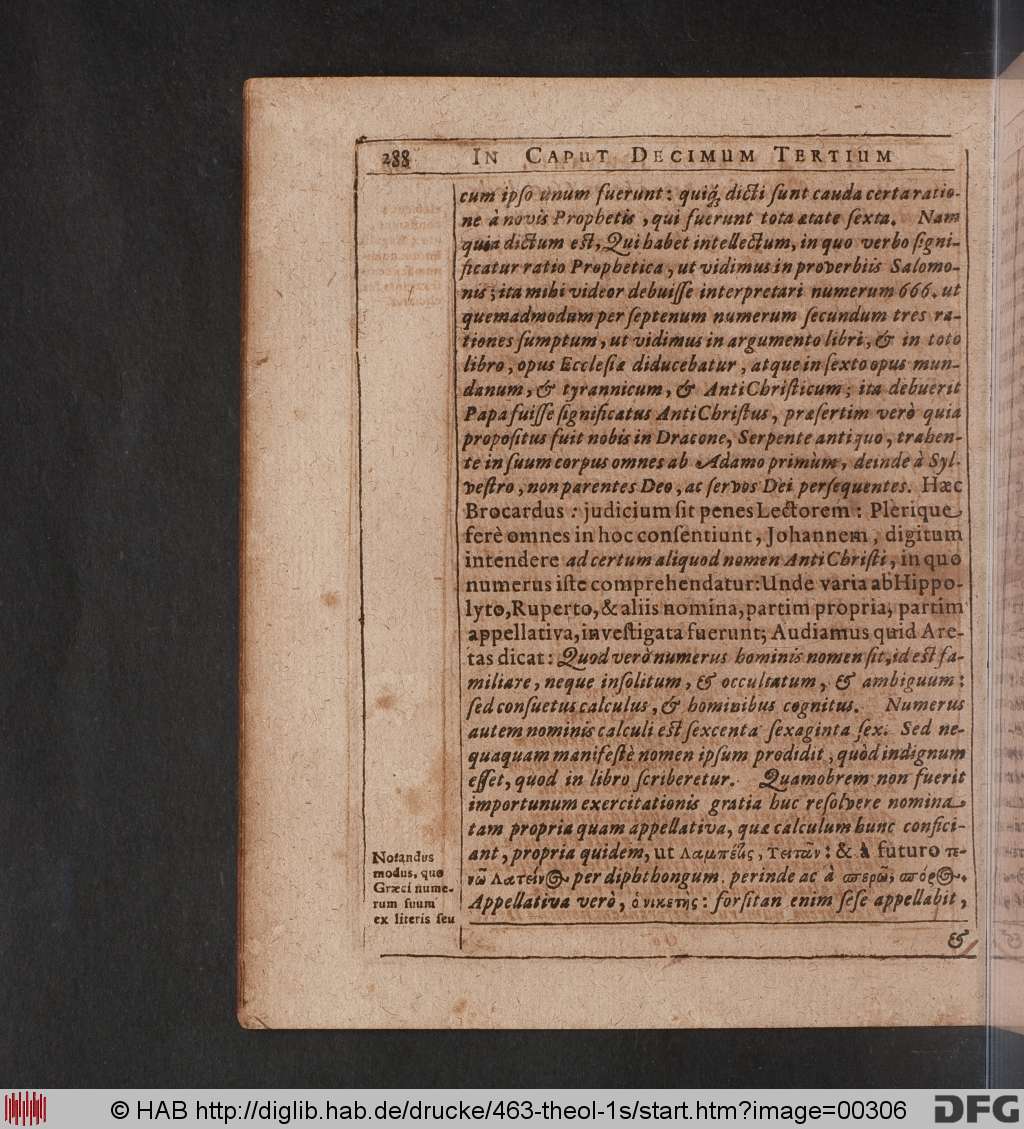 288 IN CAPUT DECIMUM TERTIUM
cum ipso unum fuerunt: quiq́; dicti sunt cauda certa ratio-
ne à novis Prophetis, qui fuerunt tota ætate sexta. Nam
quia dictum est, Qui habet intellectum, in quo verbo signi-
ficatur ratio Prophetica, ut vidimus in proverbiis Salomo-
nis; ita mihi videor debuisse interpretari numerum 666. ut
quemadmodum per septenum numerum secundum tres ra-
tiones sumptum, ut vidimus in argumento libri, & in toto
libro, opus Ecclesiæ diducebatur, atque in sexto opus mun-
danum, & tyrannicum, & AntiChristicum; ita debuerit
Papa fuisse significatus AntiChristus, præsertim verò quia
propositus fuit nobis in Dracone, Serpente antiquo, trahen-
te in suum corpus omnes ab Adamo primùm, deinde à Syl-
vestro, non parentes Deo, ac servos Dei persequentes. Hæc
Brocardus: judicium sit penes Lectorem: Plerique
ferè omnes in hoc consentiunt, Johannem, digitum
intendere ad certum aliquod nomen AntiChristi, in quo
numerus iste comprehendatur: Unde varia ab Hippo-
lyto, Ruperto, & aliis nomina, partim propria, partim
appellativa, investigata fuerunt; Audiamus quid Are-
tas dicat: Quod verò numerus hominis nomen sit, id est fa-
miliare, neque insolitum, & occultatum, & ambiguum:
sed consuetus calculus, & hominibus cognitus. Numerus
autem nominis calculi est sexcenta sexaginta sex. Sed ne-
quaquam manifestè nomen ipsum prodidit, quòd indignum
esset, quod in libro scriberetur. Quamobrem non fuerit
importunum exercitationis gratia huc resolvere nomina
tam propria quam appellativa, quæ calculum hunc confici-
ant, propria quidem, ut Λαμπέτις, Τειτᾶν: & à futuro τε-
νῶ Λατεῖνος per diphthongum, perinde ac à σπερῶ, σπόρος.
Appellativa verò, ὁ νικετὴς: forsitan enim sese appellabit,
&
Notandus
modus, quo
Græci nume-
rum suum
ex literis seu
© HAB http://diglib.hab.de/drucke/463-theol-1s/start.htm?image=00306
DFG